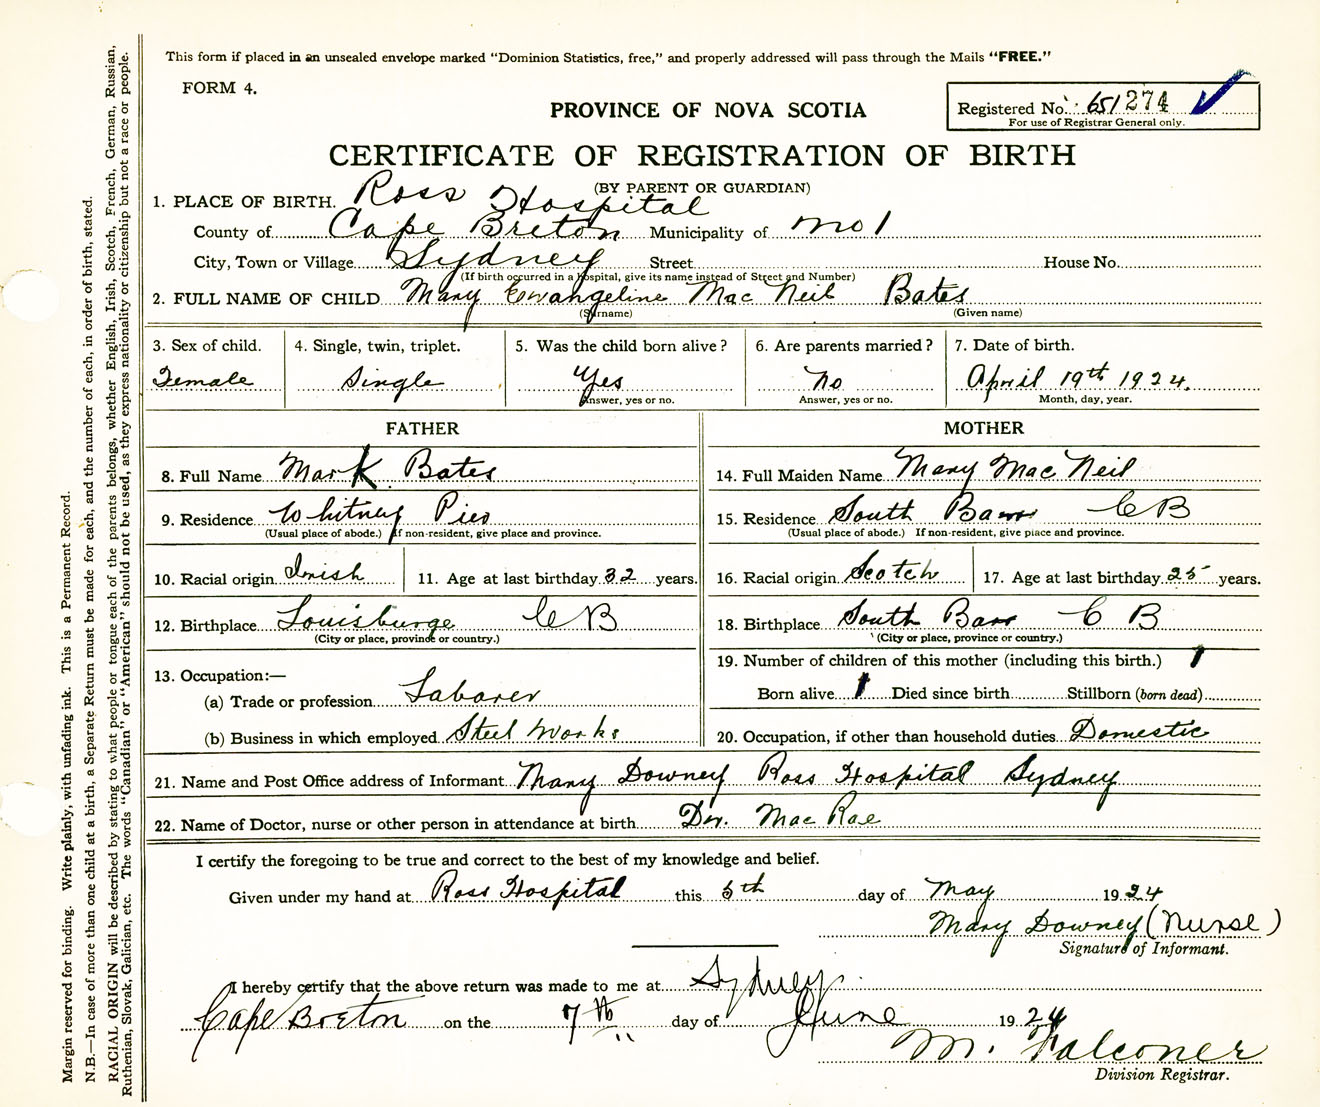 This form if placed in an unsealed envelope marked “Dominion Statistics, free,” and properly addressed will pass through the Mails “FREE.”
FORM 4.
PROVINCE OF NOVA SCOTIA
Registered No. 651274
For use of Registrar General only.
CERTIFICATE OF REGISTRATION OF BIRTH
(BY PARENT OR GUARDIAN)
1. PLACE OF BIRTH. Ross Hospital
County of Cape Breton Municipality of No 1
City, Town or Village Sydney Street House No.
(If birth occurred in a hospital, give its name instead of Street and Number)
2. FULL NAME OF CHILD Mary Evangeline Mac Neil Bates
(Surname) (Given name)
3. Sex of child. 4. Single, twin, triplet. 5. Was the child born alive? 6. Are parents married? 7. Date of birth.
Female Single Yes No April 19th 1924.
Answer, yes or no. Answer, yes or no. Month, day, year.
FATHER MOTHER
8. Full Name Mark Bates 14. Full Maiden Name Mary Mac Neil
9. Residence Whitney Pier 15. Residence South Bar C B
(Usual place of abode.) If non-resident, give place and province. (Usual place of abode.) If non-resident, give place and province.
10. Racial origin Irish 11. Age at last birthday 32 years. 16. Racial origin Scotch 17. Age at last birthday 25 years.
12. Birthplace Louisburge C B 18. Birthplace South Bar C B
(City or place, province or country.) (City or place, province or country.)
19. Number of children of this mother (including this birth.) 1
13. Occupation:—
(a) Trade or profession Laborer Born alive 1 Died since birth Stillborn (born dead)
(b) Business in which employed Steel Works 20. Occupation, if other than household duties Domestic
21. Name and Post Office address of Informant Mary Downey Ross Hospital Sydney
22. Name of Doctor, nurse or other person in attendance at birth Dr. Mac Rae
I certify the foregoing to be true and correct to the best of my knowledge and belief.
Given under my hand at Ross Hospital this 5th day of May 1924
Mary Downey (Nurse)
Signature of Informant.
I hereby certify that the above return was made to me at Sydney
Cape Breton on the 7th day of June 1924
M. Falconer
Division Registrar.
Margin reserved for binding. Write plainly, with unfading ink. This is a Permanent Record.
N.B.—In case of more than one child at a birth, a Separate Return must be made for each, and the number of each, in order of birth, stated.
RACIAL ORIGIN will be described by stating to what people or tongue each of the parents belongs, whether English, Irish, Scotch, French, German, Russian,
Ruthenian, Slovak, Galician, etc. The words “Canadian” or “American” should not be used, as they express nationality or citizenship but not a race or people.